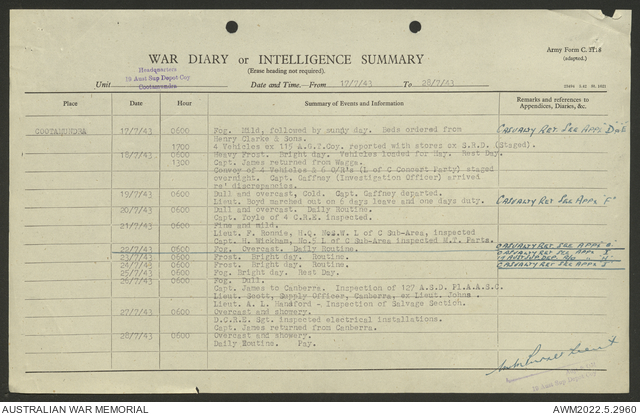 Army Form C. 2118
(adapted.)
WAR DIARY or INTELLIGENCE SUMMARY
(Erase heading not required).
Headquarters
19 Aust Sup Depot Coy
Cootamundra
Unit
Date and Time.—From 17/7/43 To 28/7/43
Place Date Hour Summary of Events and Information Remarks and references to Appendices, Diaries, &c.
COOTAMUNDRA 17/7/43 0600 Fog. Mild, followed by sunny day. Beds ordered from CASUALTY RET SEE APPX
Henry Clarke & Sons.
1700 4 Vehicles ex 115 A.G.T.Coy. reported with stores ex S.R.D. (Staged).
18/7/43 0600 Heavy Frost. Bright day. Vehicles loaded for Hay. Rest Day.
1300 Capt James returned from Wagga.
Convoy of 4 Vehicles & 6 O/R's (L of C Concert Party) staged
overnight. Capt. Gaffney (Investigation Officer) arrived
re discrepancies.
19/7/43 0600 Dull and overcast, Cold. Capt. Gaffney departed.
Lieut. Boyd marched out on 6 days leave and one days duty. CASUALTY RET SEE APPX "F"
20/7/43 0600 Dull and overcast. Daily Routine.
Capt. Toyle of 4 C.R.E. inspected.
21/7/43 0600 Fine and mild.
Lieut. F. Rennie, H.Q. L of C Sub-Area, inspected
Capt. H. Wickham, No.5 L of C Sub-Area inspected M.T. Parts.
22/7/43 0600 Fog. Overcast. Daily Routine. CASUALTY RET SEE APPX
23/7/43 0600 Frost. Bright day. Routine. CASUALTY RET SEE APPX
24/7/43 0600 Frost. Bright day. Routine. CASUALTY RET SEE APPX
25/7/43 0600 Fog. Bright day. Rest Day.
26/7/43 0600 Fog. Dull.
Capt. James to Canberra. Inspection of 127 A.S.D. Pl.A.A.S.C.
Lieut. Scott, Supply Officer, Canberra, ex Lieut. Johns.
Lieut. A. L. Handford - Inspection of Salvage Section.
27/7/43 0600 Overcast and showery.
D.C.R.E. Sgt. inspected electrical installations.
Capt. James returned from Canberra.
28/7/43 0600 Overcast and showery.
Daily Routine. Pay.
Lieut
19 Aust Sup
AUSTRALIAN WAR MEMORIAL
AWM2022.5.2960